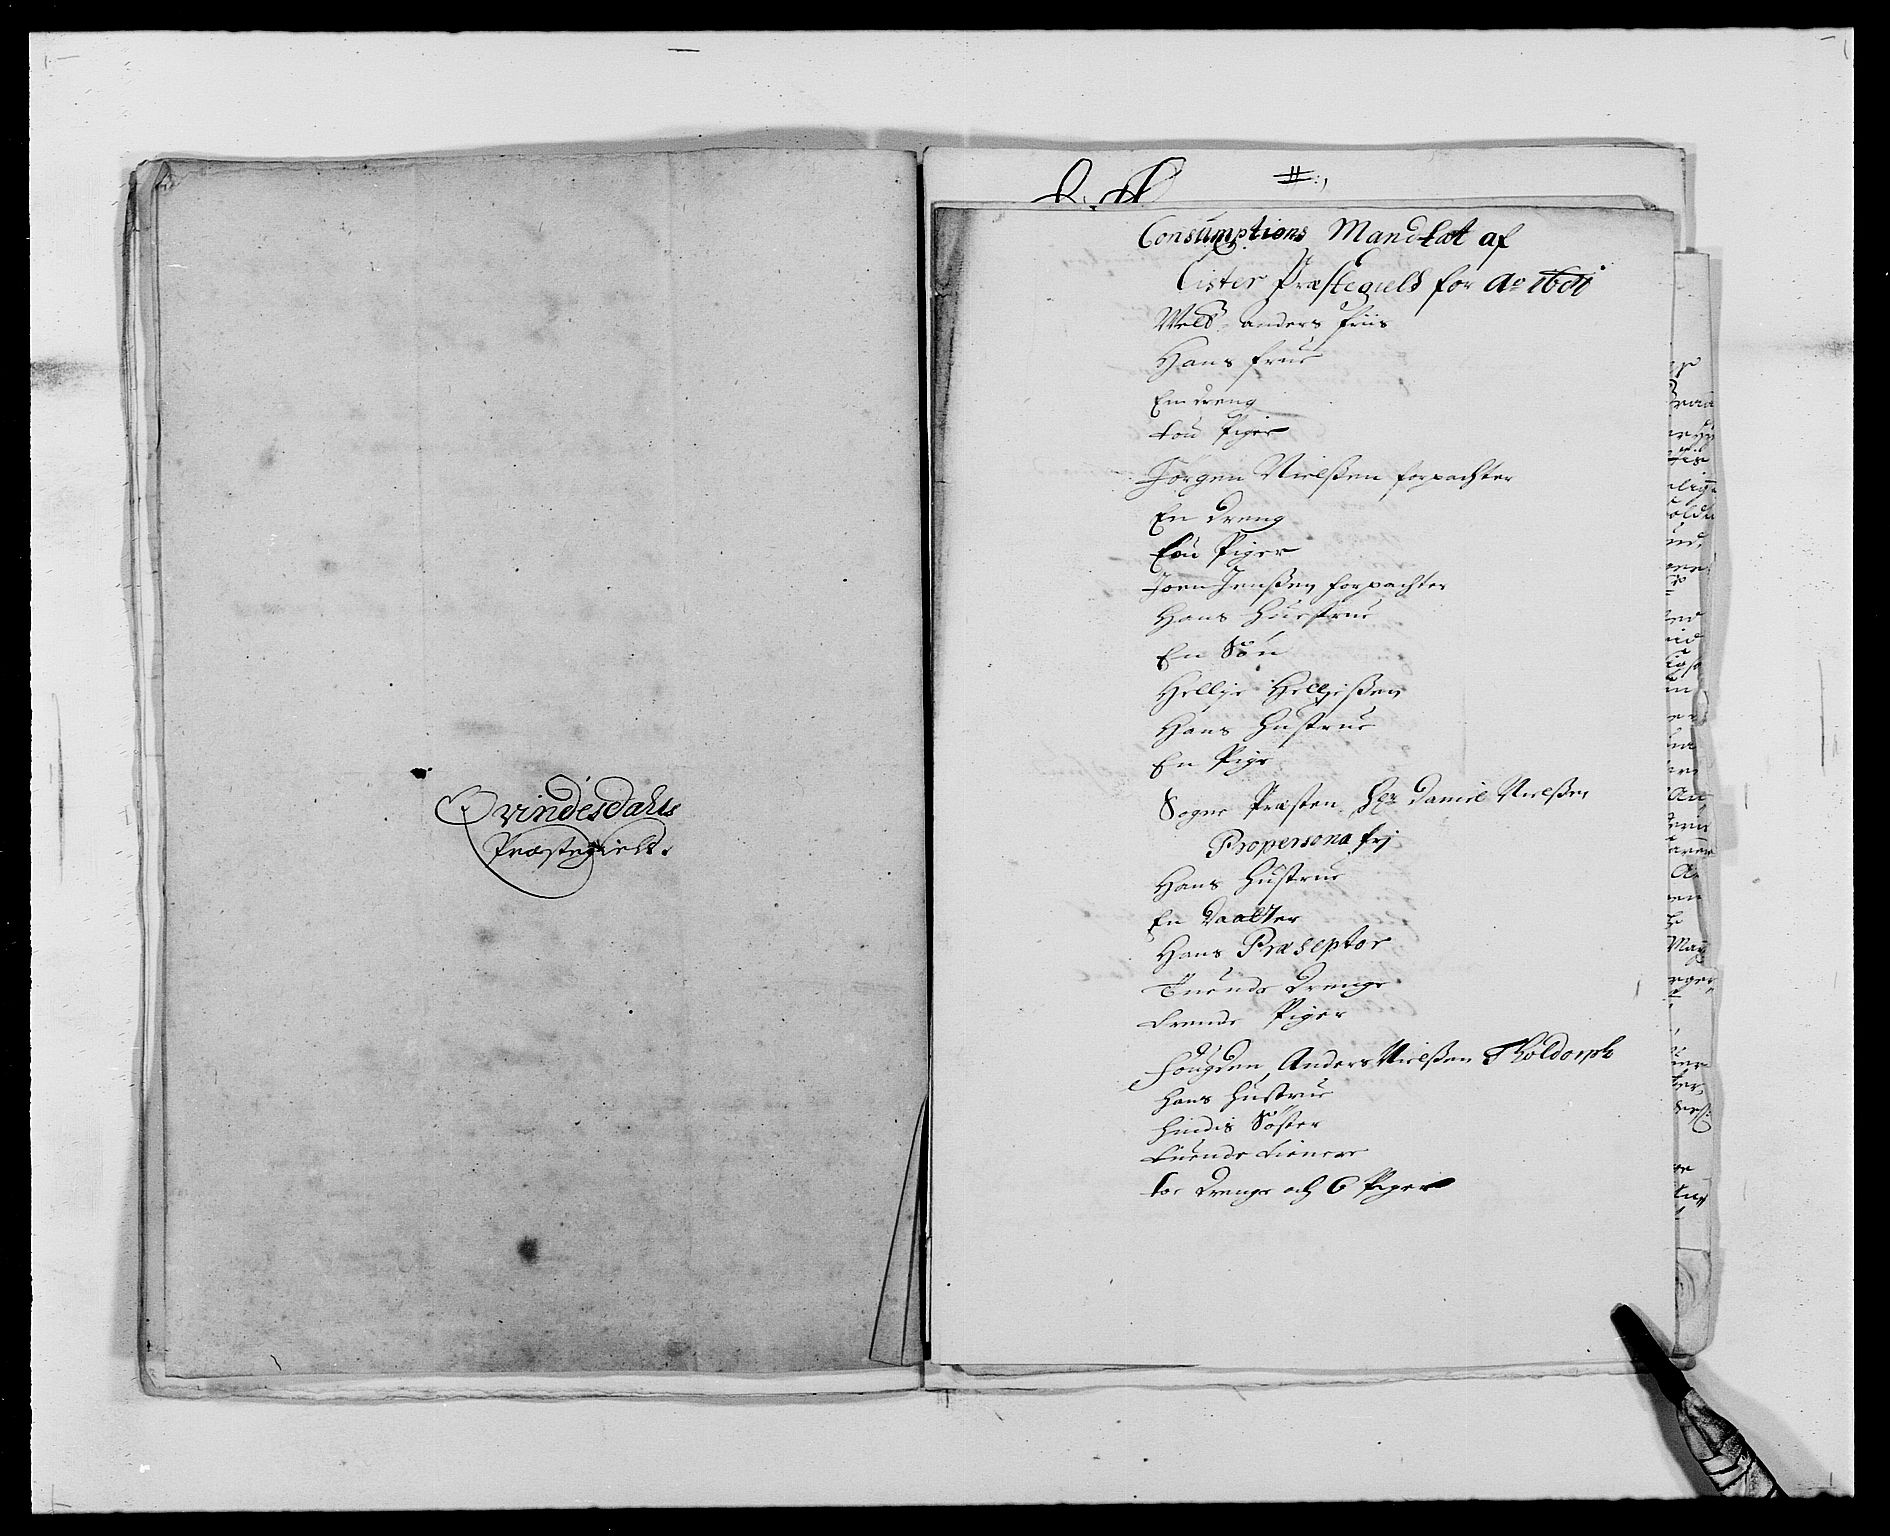 Qvindesdahls
Præstegield.
#:,
Consumptions Mandtat af
Lister Præstegield for Ao
Welb: anders friis
Hans frue
Een dreng
tou Piger
Jørgen Nielsßen forpachter
En dreng
tou Piger
Joen Jensßen forpachter
Hans Huustrue
En Søn
Hellje Helljesßen
Hans Hustrue
En Pige
Sogne Præsten Hr Daniel Nielsßen
Propersona frj
Hans Hustrue
En Daatter
Hans Præseptor
Tuende Drenge
trende Piger
fougden Anders Nielsßen Tholdorph
hans hustrue
hindis Søster
tuende tienere
toe Drenge och 6 Piger